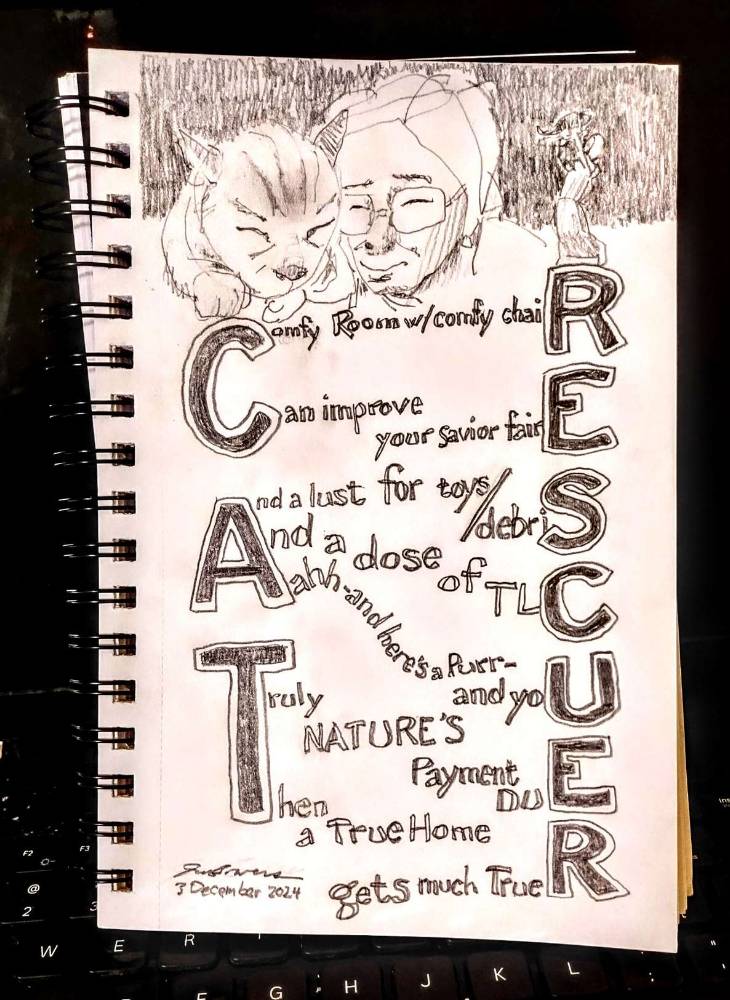 Comfy Room w/comfy chaiR
Can improve
your savior fairE
And a lust for toys/debriS
And a dose of TLC
Aahh-and here's a Purr-
and yoU
Truly
NATURE'S
Payment
DUE
Then
a True Home
gets much TrueR
3 December 2024
F2 F3
@
2 3
W E R
F G H J K L